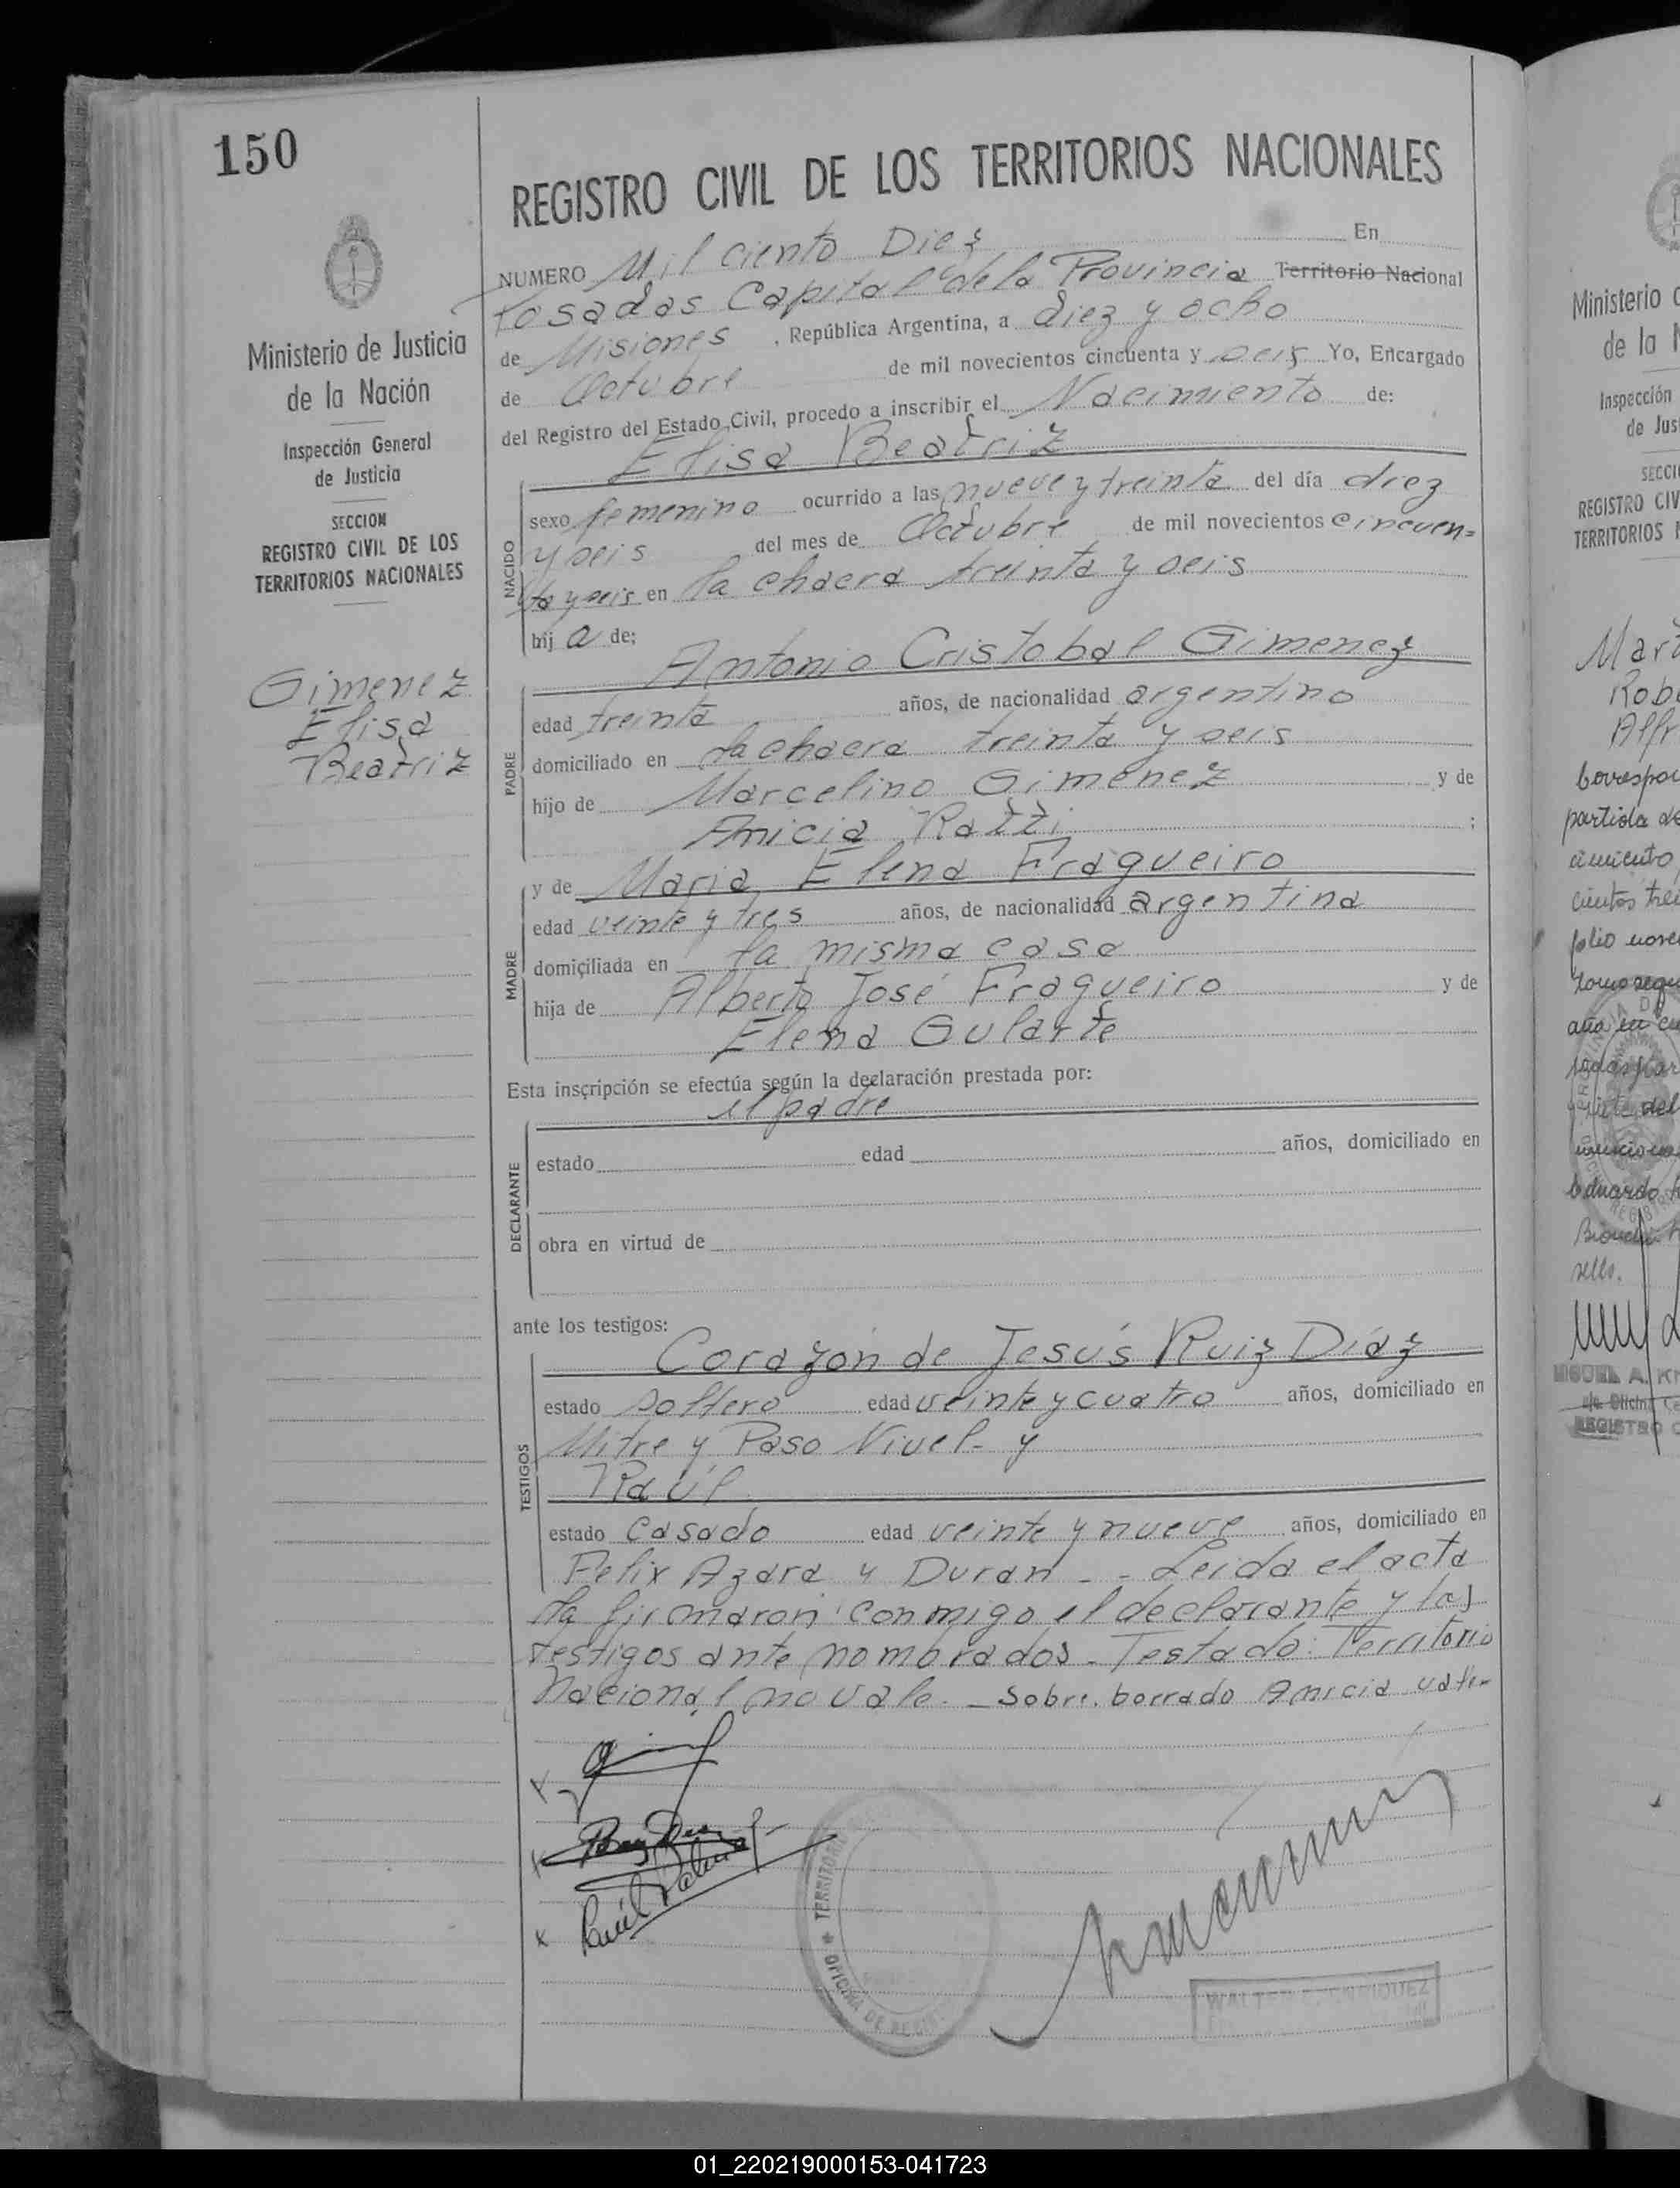 150
REGISTRO CIVIL DE LOS TERRITORIOS NACIONALES
Ministerio de Justicia
de la Nación
Inspección General
de Justicia
SECCION
REGISTRO CIVIL DE LOS
TERRITORIOS NACIONALES
Gimenez
Elisa
Beatriz
NUMERO Mil ciento Diez En
Posadas Capital de la Provincia Territorio Nacional
de Misiones, República Argentina, a diez y ocho
de Octubre de mil novecientos cincuenta y seis Yo, Encargado
del Registro del Estado Civil, procedo a inscribir el Nacimiento de:
Elisa Beatriz
NACIDO
sexo femenino ocurrido a las nueve y treinta del día diez
y seis del mes de Octubre de mil novecientos cincuen=
ta y seis en la chacra treinta y seis
hij a de;
Antonio Cristobal Gimenez
PADRE
edad treinta años, de nacionalidad argentino
domiciliado en la chacra treinta y seis
hijo de Marcelino Gimenez y de
Amicia Ratti;
MADRE
y de Maria Elena Fragueiro
edad veinte y tres años, de nacionalidad argentina
domiciliada en la misma casa
hija de Alberto José Fragueiro y de
Elena Gularte
Esta inscripción se efectúa según la declaración prestada por:
el padre
DECLARANTE
estado edad años, domiciliado en
obra en virtud de
ante los testigos:
TESTIGOS
Corazón de Jesús Ruiz Díaz
estado soltero edad veinte y cuatro años, domiciliado en
Mitre y Paso Nivel - y
Raúl
estado casado edad veinte y nueve años, domiciliado en
Felix Azara y Duran - - Leida el acta
la firmaron conmigo el declarante y los
testigos ante nombrados - Testado: Territorio
Nacional no vale. - Sobre borrado Amicia vale-
Raúl
TERRITORI
OFICINA DE REGIS
WALTER ENRIQUEZ
Ministerio
de la
Inspección
de Jus
SECCI
REGISTRO CIV
TERRITORIOS
Mart
Rob
Alfr
partida de
folio
Eduardo
sello.
MIGUEL A. KR
REGISTRO C
01_220219000153-041723